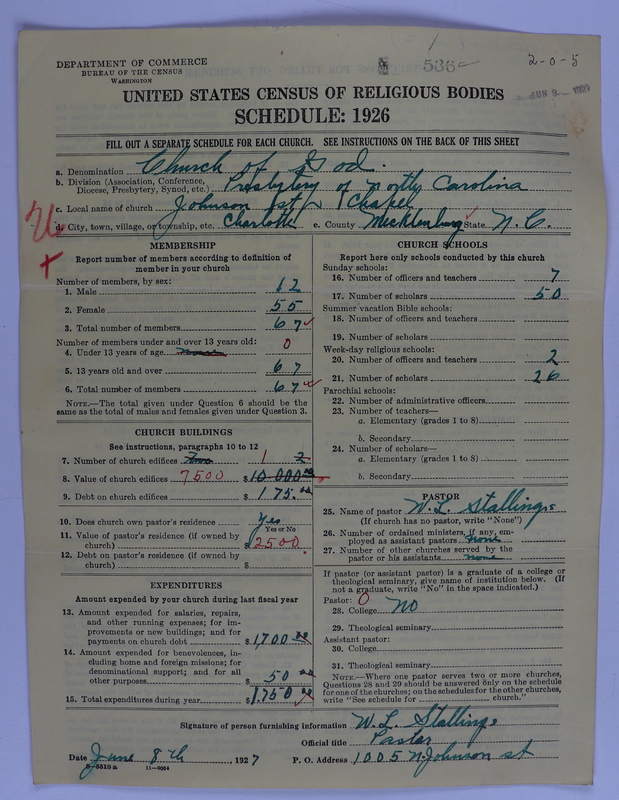 DEPARTMENT OF COMMERCE
BUREAU OF THE CENSUS
WASHINGTON
536
2-0-5
JUN 9 1927
UNITED STATES CENSUS OF RELIGIOUS BODIES
SCHEDULE: 1926
FILL OUT A SEPARATE SCHEDULE FOR EACH CHURCH. SEE INSTRUCTIONS ON THE BACK OF THIS SHEET
a. Denomination Church of God.
b. Division (Association, Conference, Diocese, Presbytery, Synod, etc.) Presbytery of North Carolina
c. Local name of church Johnson st Chapel
d. City, town, village, or township, etc. Charlotte e. County Mecklenburg State N. C.
MEMBERSHIP
Report number of members according to definition of
member in your church
Number of members, by sex:
1. Male 12
2. Female 55
3. Total number of members 67
Number of members under and over 13 years old:
4. Under 13 years of age 0
5. 13 years old and over 67
6. Total number of members 67
NOTE.—The total given under Question 6 should be
the same as the total of males and females given under Question 3.
CHURCH BUILDINGS
See instructions, paragraphs 10 to 12
7. Number of church edifices Two 1 2
8. Value of church edifices 7500 $10 000.00
9. Debt on church edifices $175.00
10. Does church own pastor's residence Yes
Yes or No
11. Value of pastor's residence (if owned by
church) $2500
12. Debt on pastor's residence (if owned by
church) $
EXPENDITURES
Amount expended by your church during last fiscal year
13. Amount expended for salaries, repairs,
and other running expenses; for im-
provements or new buildings; and for
payments on church debt $1,700.00
14. Amount expended for benevolences, in-
cluding home and foreign missions; for
denominational support; and for all
other purposes $50.00
15. Total expenditures during year $1.750.00
CHURCH SCHOOLS
Report here only schools conducted by this church
Sunday schools:
16. Number of officers and teachers 7
17. Number of scholars 50
Summer vacation Bible schools:
18. Number of officers and teachers
19. Number of scholars
Week-day religious schools:
20. Number of officers and teachers 2
21. Number of scholars 26
Parochial schools:
22. Number of administrative officers
23. Number of teachers—
a. Elementary (grades 1 to 8)
b. Secondary
24. Number of scholars—
a. Elementary (grades 1 to 8)
b. Secondary
PASTOR
25. Name of pastor W. L. Stallings
(If church has no pastor, write "None")
26. Number of ordained ministers, if any, em-
ployed as assistant pastors none
27. Number of other churches served by the
pastor or his assistants none
If pastor (or assistant pastor) is a graduate of a college or
theological seminary, give name of institution below. (If
not a graduate, write "No" in the space indicated.)
Pastor: 0
28. College No
29. Theological seminary
Assistant pastor:
30. College
31. Theological seminary
NOTE.—Where one pastor serves two or more churches,
Questions 28 and 29 should be answered only on the schedule
for one of the churches; on the schedules for the other churches,
write "See schedule for church."
Signature of person furnishing information W. L. Stallings
Official title Pastor
Date June 8th, 1927 P. O. Address 1005 N. Johnson st
8-5518a 11-9664